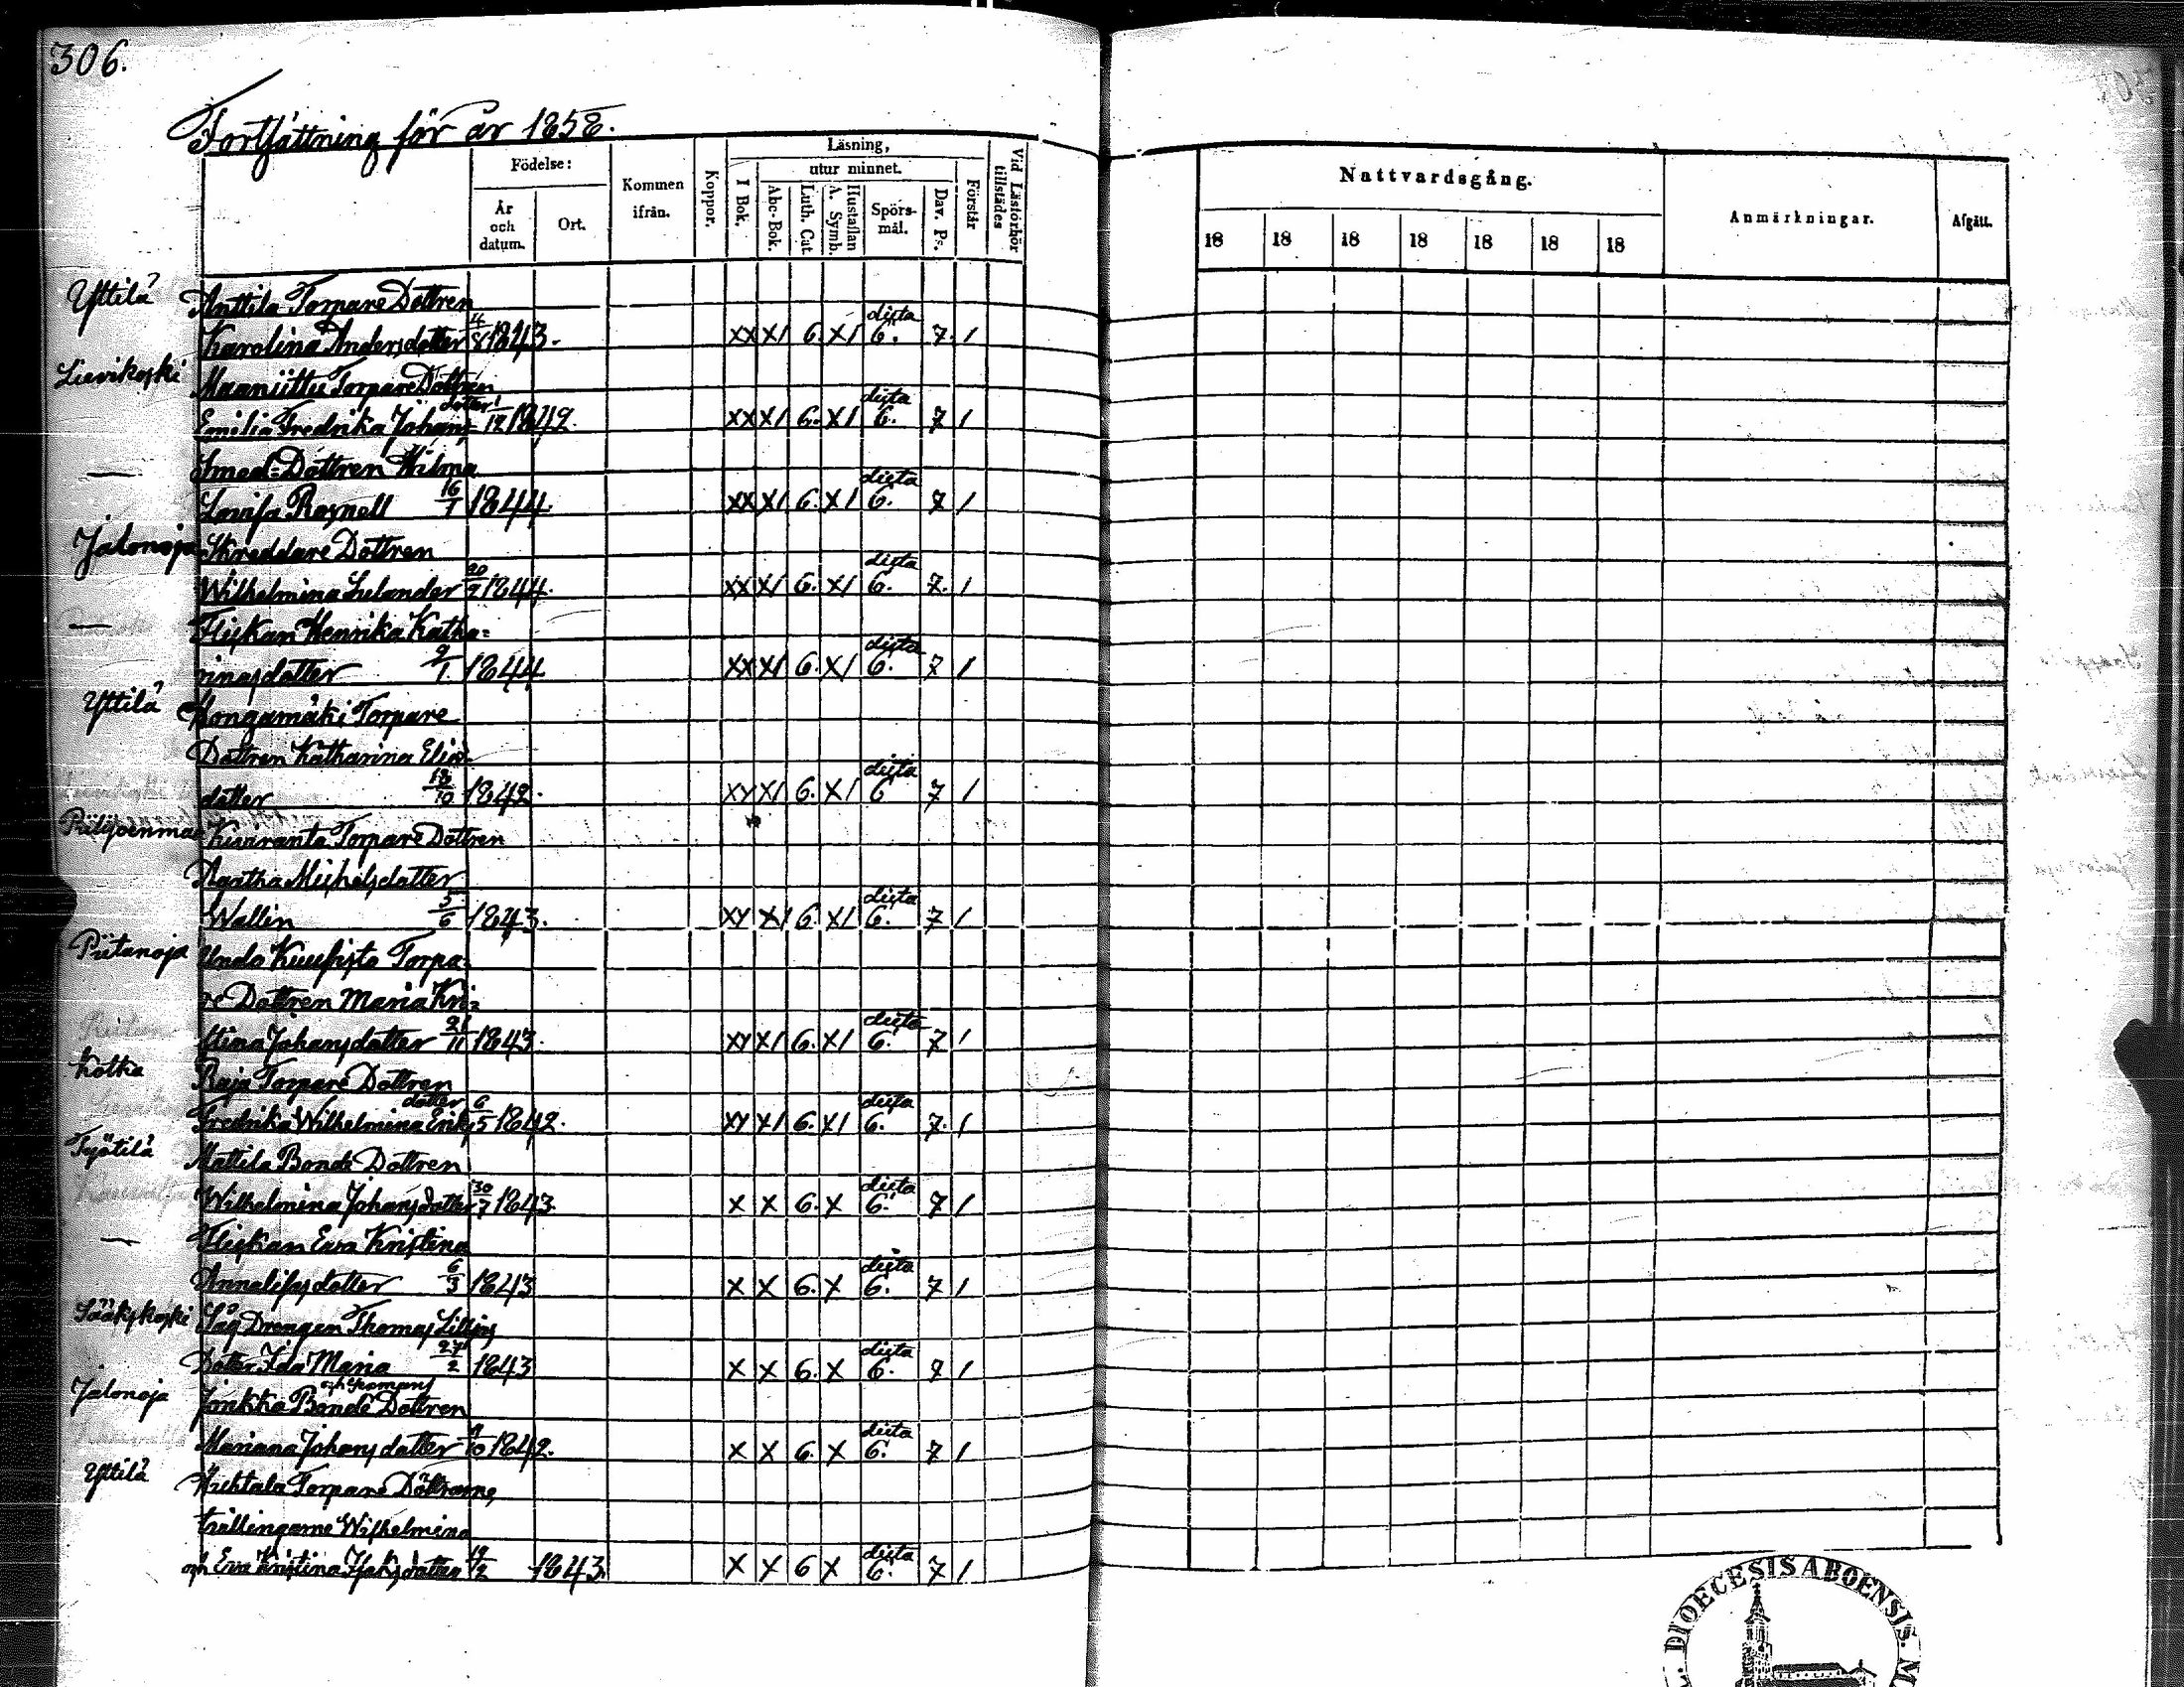 306.
Fortsättning för år 1858.
Födelse:
År och datum.
Ort.
Kommen ifrån.
Koppor.
Läsning,
utur minnet.
I Bok.
Abc-Bok.
Luth. Cat.
Hustaflan A. Symb.
Spörs-mål.
Dav. Ps.
Förstår
Vid Läsförhör tillstädes
Nattvardsgång.
18 18 18 18 18 18 18
Anmärkningar.
Afgått.
Yttilä Anttila Torpare Dottren
Karolina Andersdotter 4/8 1843. XX XI 6. XI dista 6. 7. 1
Lievikoski Maaniittu Torpare Dottren
Emilia Fredrika Johans dotter 1/12 1842. XX XI 6. XI dista 6. 7 1
— Smed-Dottren Wilma
Lovisa Rosnell 16/7 1844. XX XI 6. XI dista 6. 7 1
Jalonoja Skreddare Dottren
Wilhelmina Lulander 20/9 1844. XX XI 6. XI dista 6. 7. 1
— Flickan Henrika Katha-
rinasdotter 9/1 1844. XX XI 6. XI dista 6. 7 1
Yttilä Hongamäki Torpare
Dottren Katharina Elias
dotter 18/10 1842. XX XI 6. XI dista 6 7 1
Piilijoenmaa Kiviranta Torpare Dottren
Agatha Michelsdotter
Wallin 5/6 1843. XX XI 6. XI dista 6. 7 1
Piitanoja Undo Kuusisto Torpa-
re Dottren Maria Kri-
stina Johansdotter 21/11 1843. XX XI 6. XI dista 6. 7 1
Kotka Raja Torpare Dottren
Fredrika Wilhelmina Eriks dotter 6/5 1842. XX XI 6. XI dista 6. 7. 1
Työtilä Mattila Bonde Dottren
Wilhelmina Johansdotter 30/7 1843. X X 6. X dista 6. 7 1
— Flickan Eva Kristina
Annalisasdotter 6/3 1843 X X 6. X dista 6. 7 1
Sääkskoski Såg Drengen Thomas
Dotter Ida Maria 27/2 1843 X X 6. X dista 6. 7 1
Jalonoja Jonkka Bonde Dottren
Mariana Johansdotter 1842. X X 6. X dista 6. 7 1
Yttilä Huhtala Torpare Döttrarne,
trillingarne Wilhelmina
och Eva Kristina Isaksdotter 19/2 1843. X X 6 X dista 6. 7 1
DIOECESIS ABOENSIS.